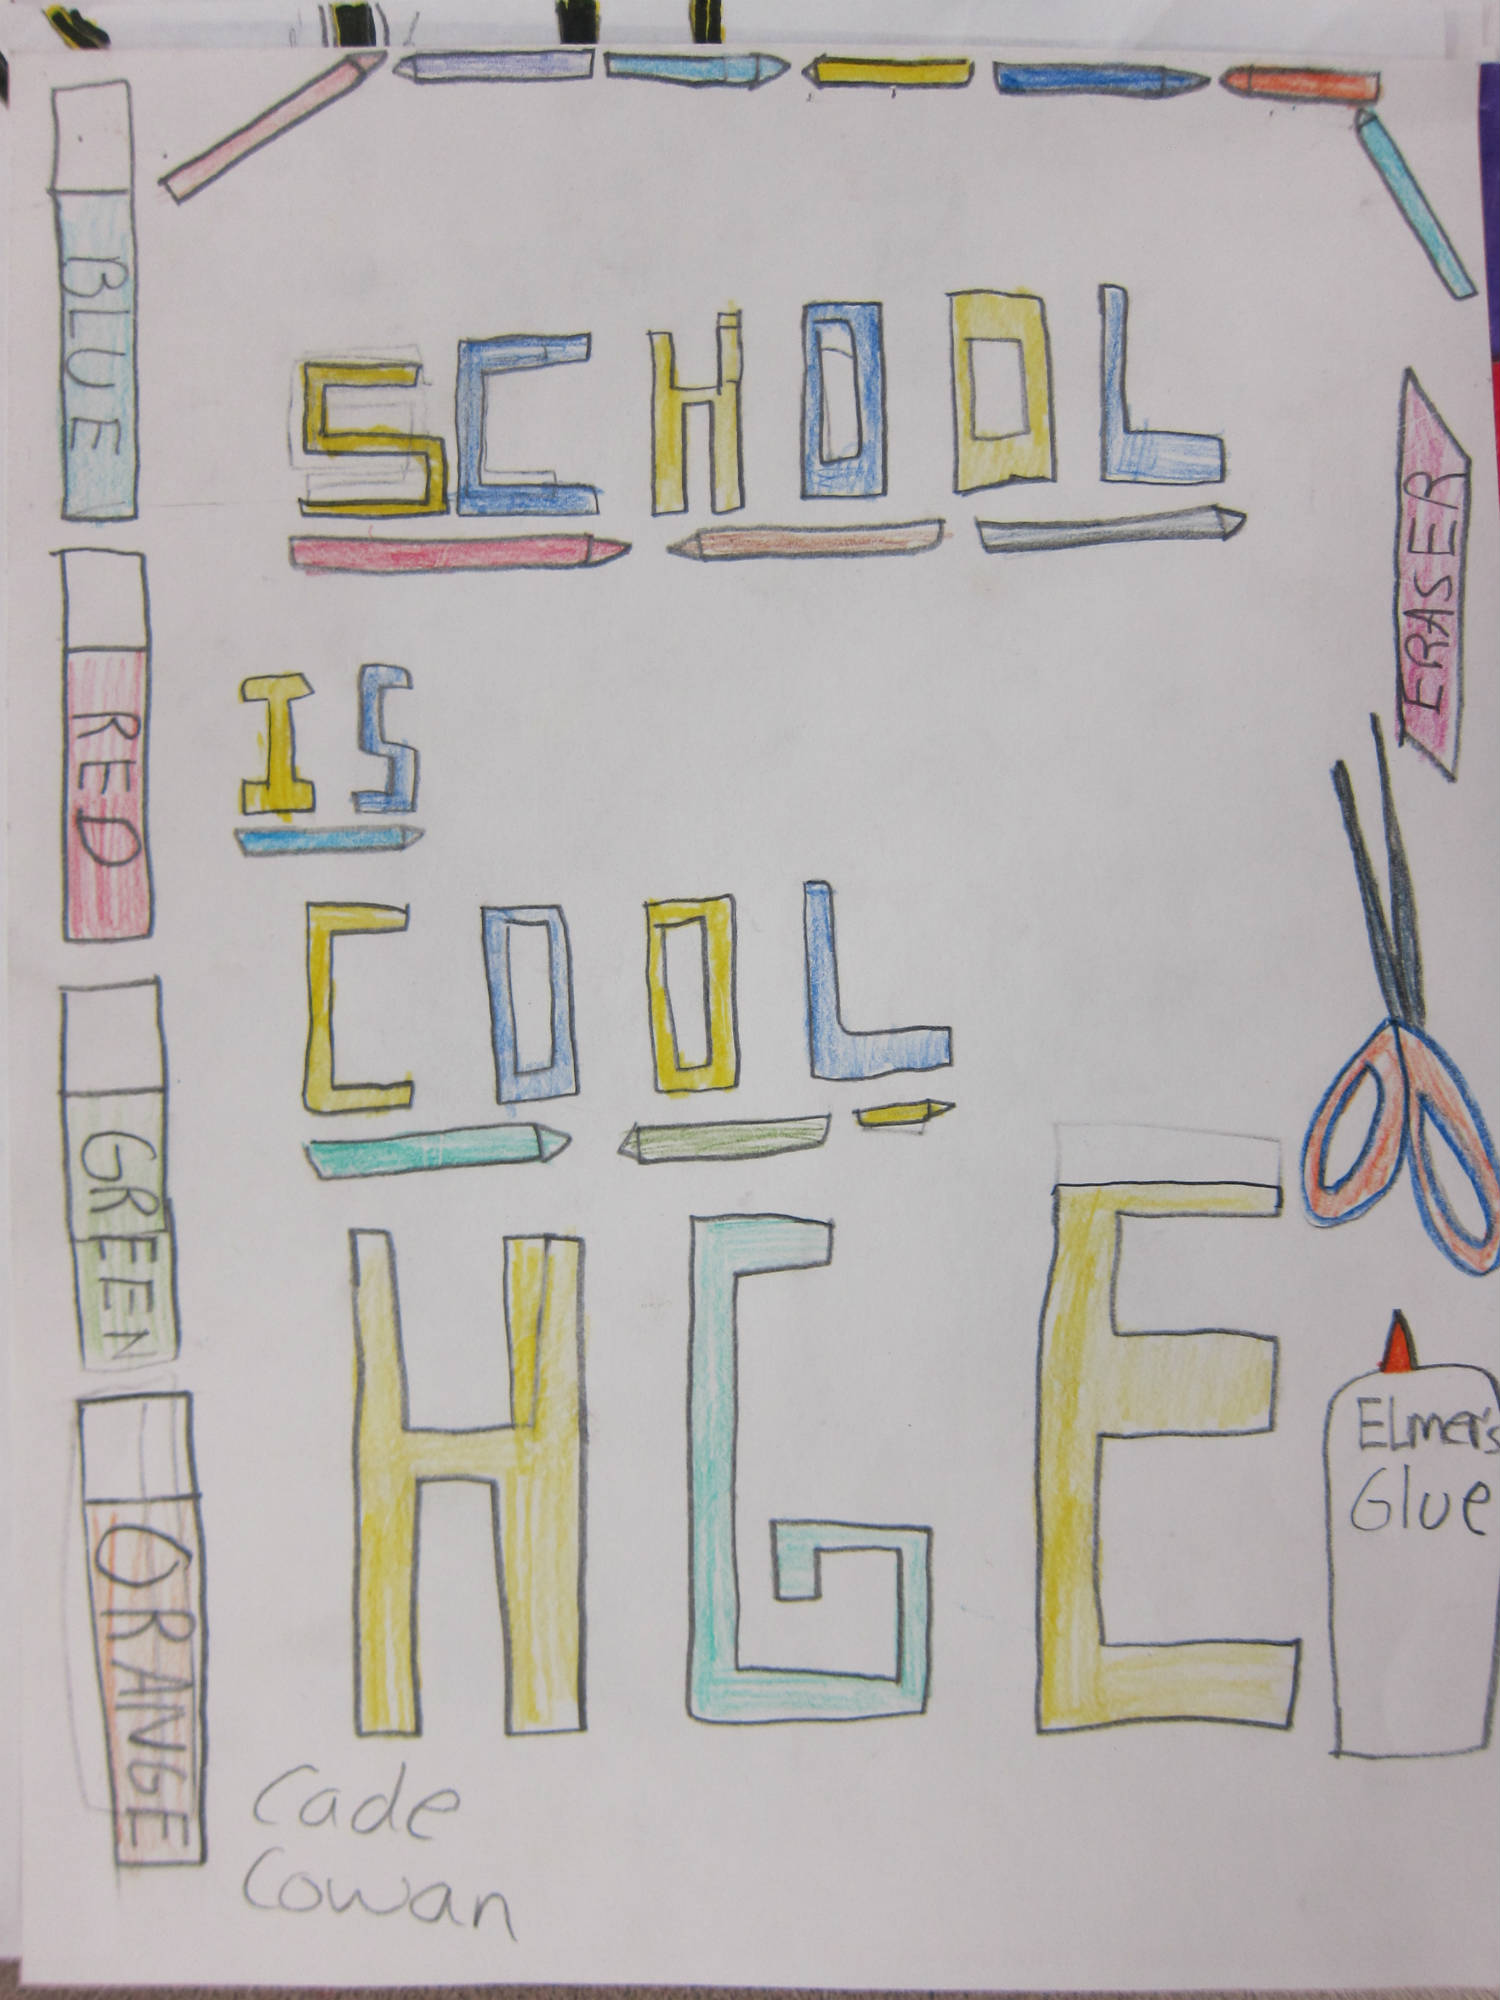 SCHOOL
IS
COOL
HGE
BLUE
RED
GREEN
ORANGE
ERASER
ELmer's
Glue
Cade
Cowan